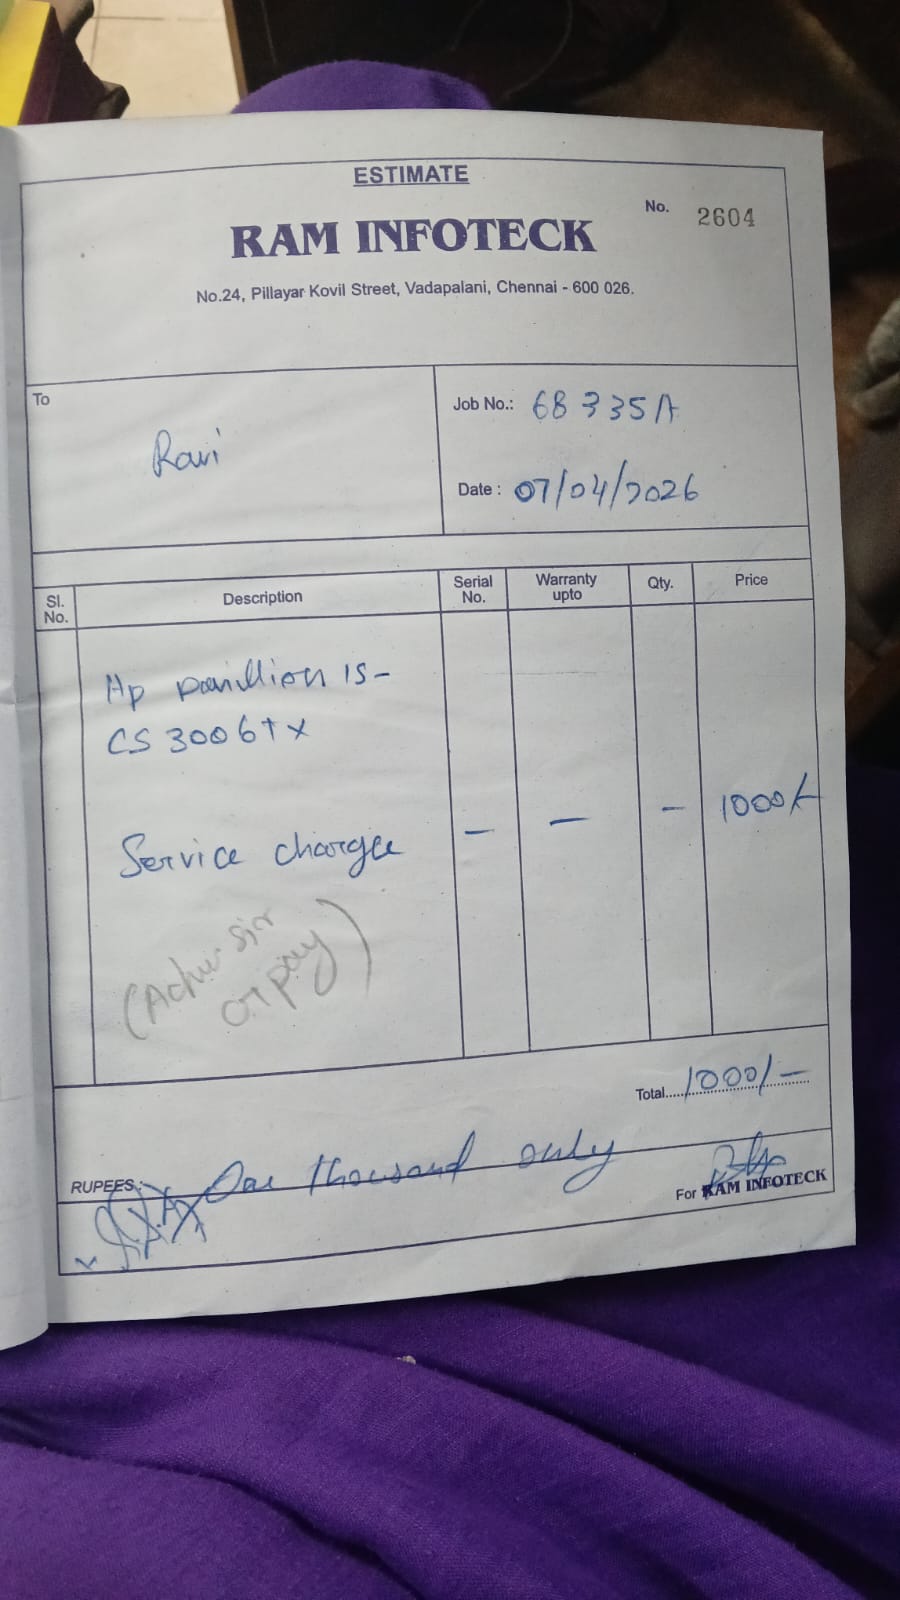 ESTIMATE
No. 2604
RAM INFOTECK
No.24, Pillayar Kovil Street, Vadapalani, Chennai - 600 026.
To
Ravi
Job No.: 68335A
Date : 07/04/2026
Sl. No. Description Serial No. Warranty upto Qty. Price
Hp pavillion 15-
CS 3006tx
Service charge - - - 1000/-
sir
pay)
Total.....1000/-
RUPEES. One thousand only
For RAM INFOTECK